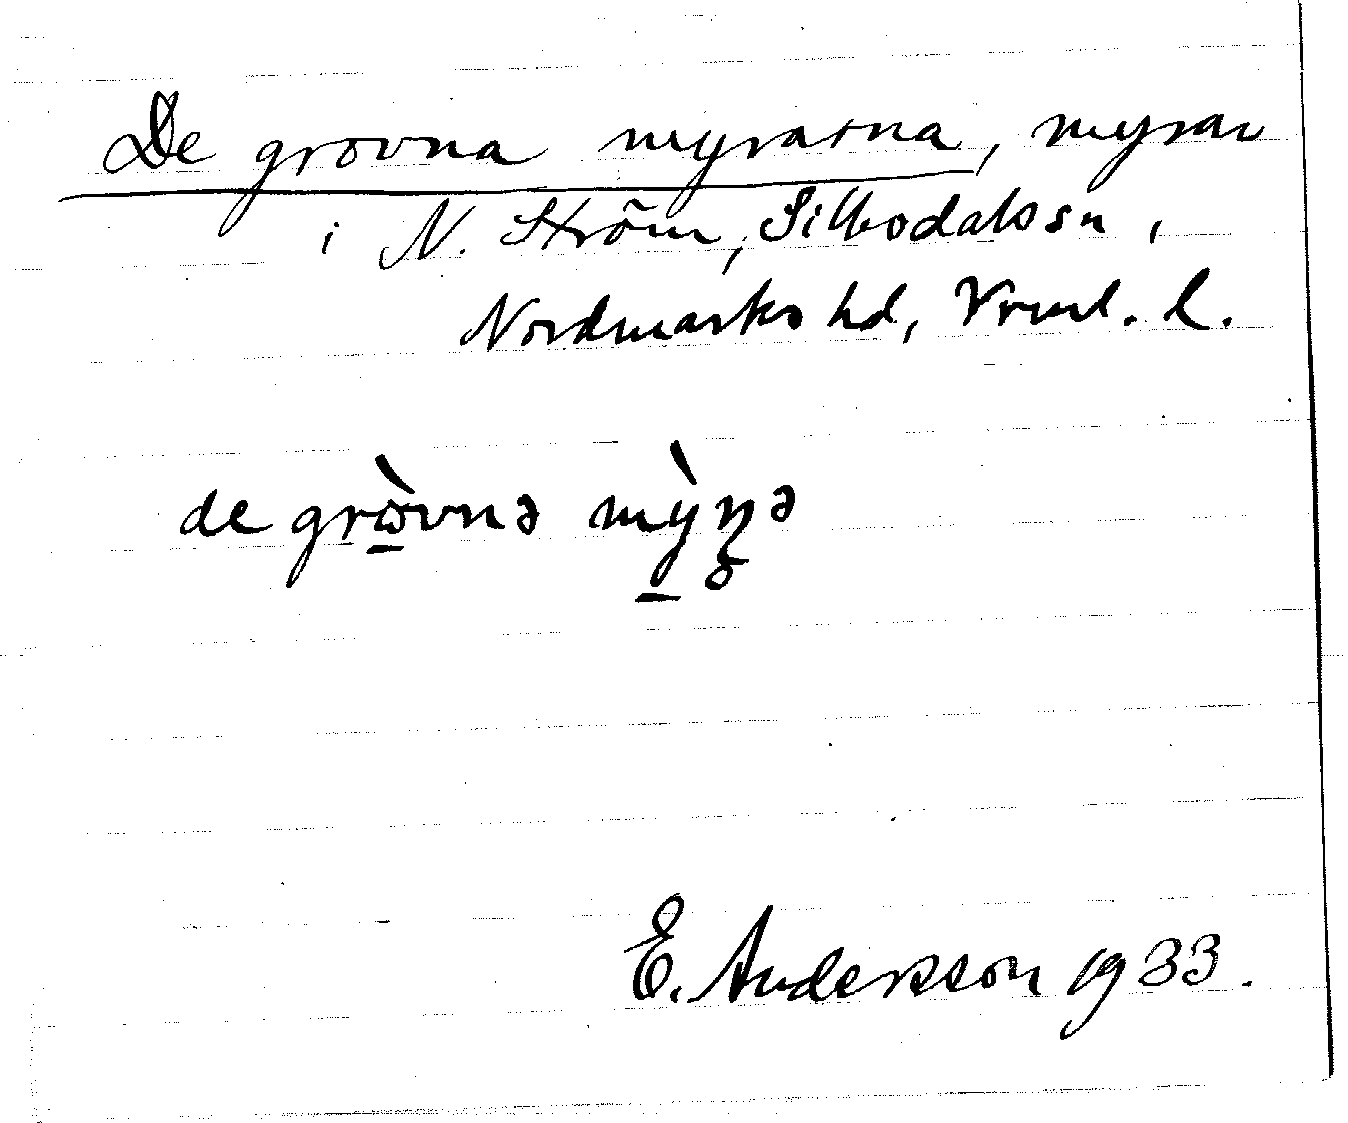 De grovna myrarna, myrar
i N. Ström, Silbodals sn,
Nordmarks hd, Vrml. l.
de grɷ̱̀vnə mỳ̱ṇə
E. Andersson 1933.